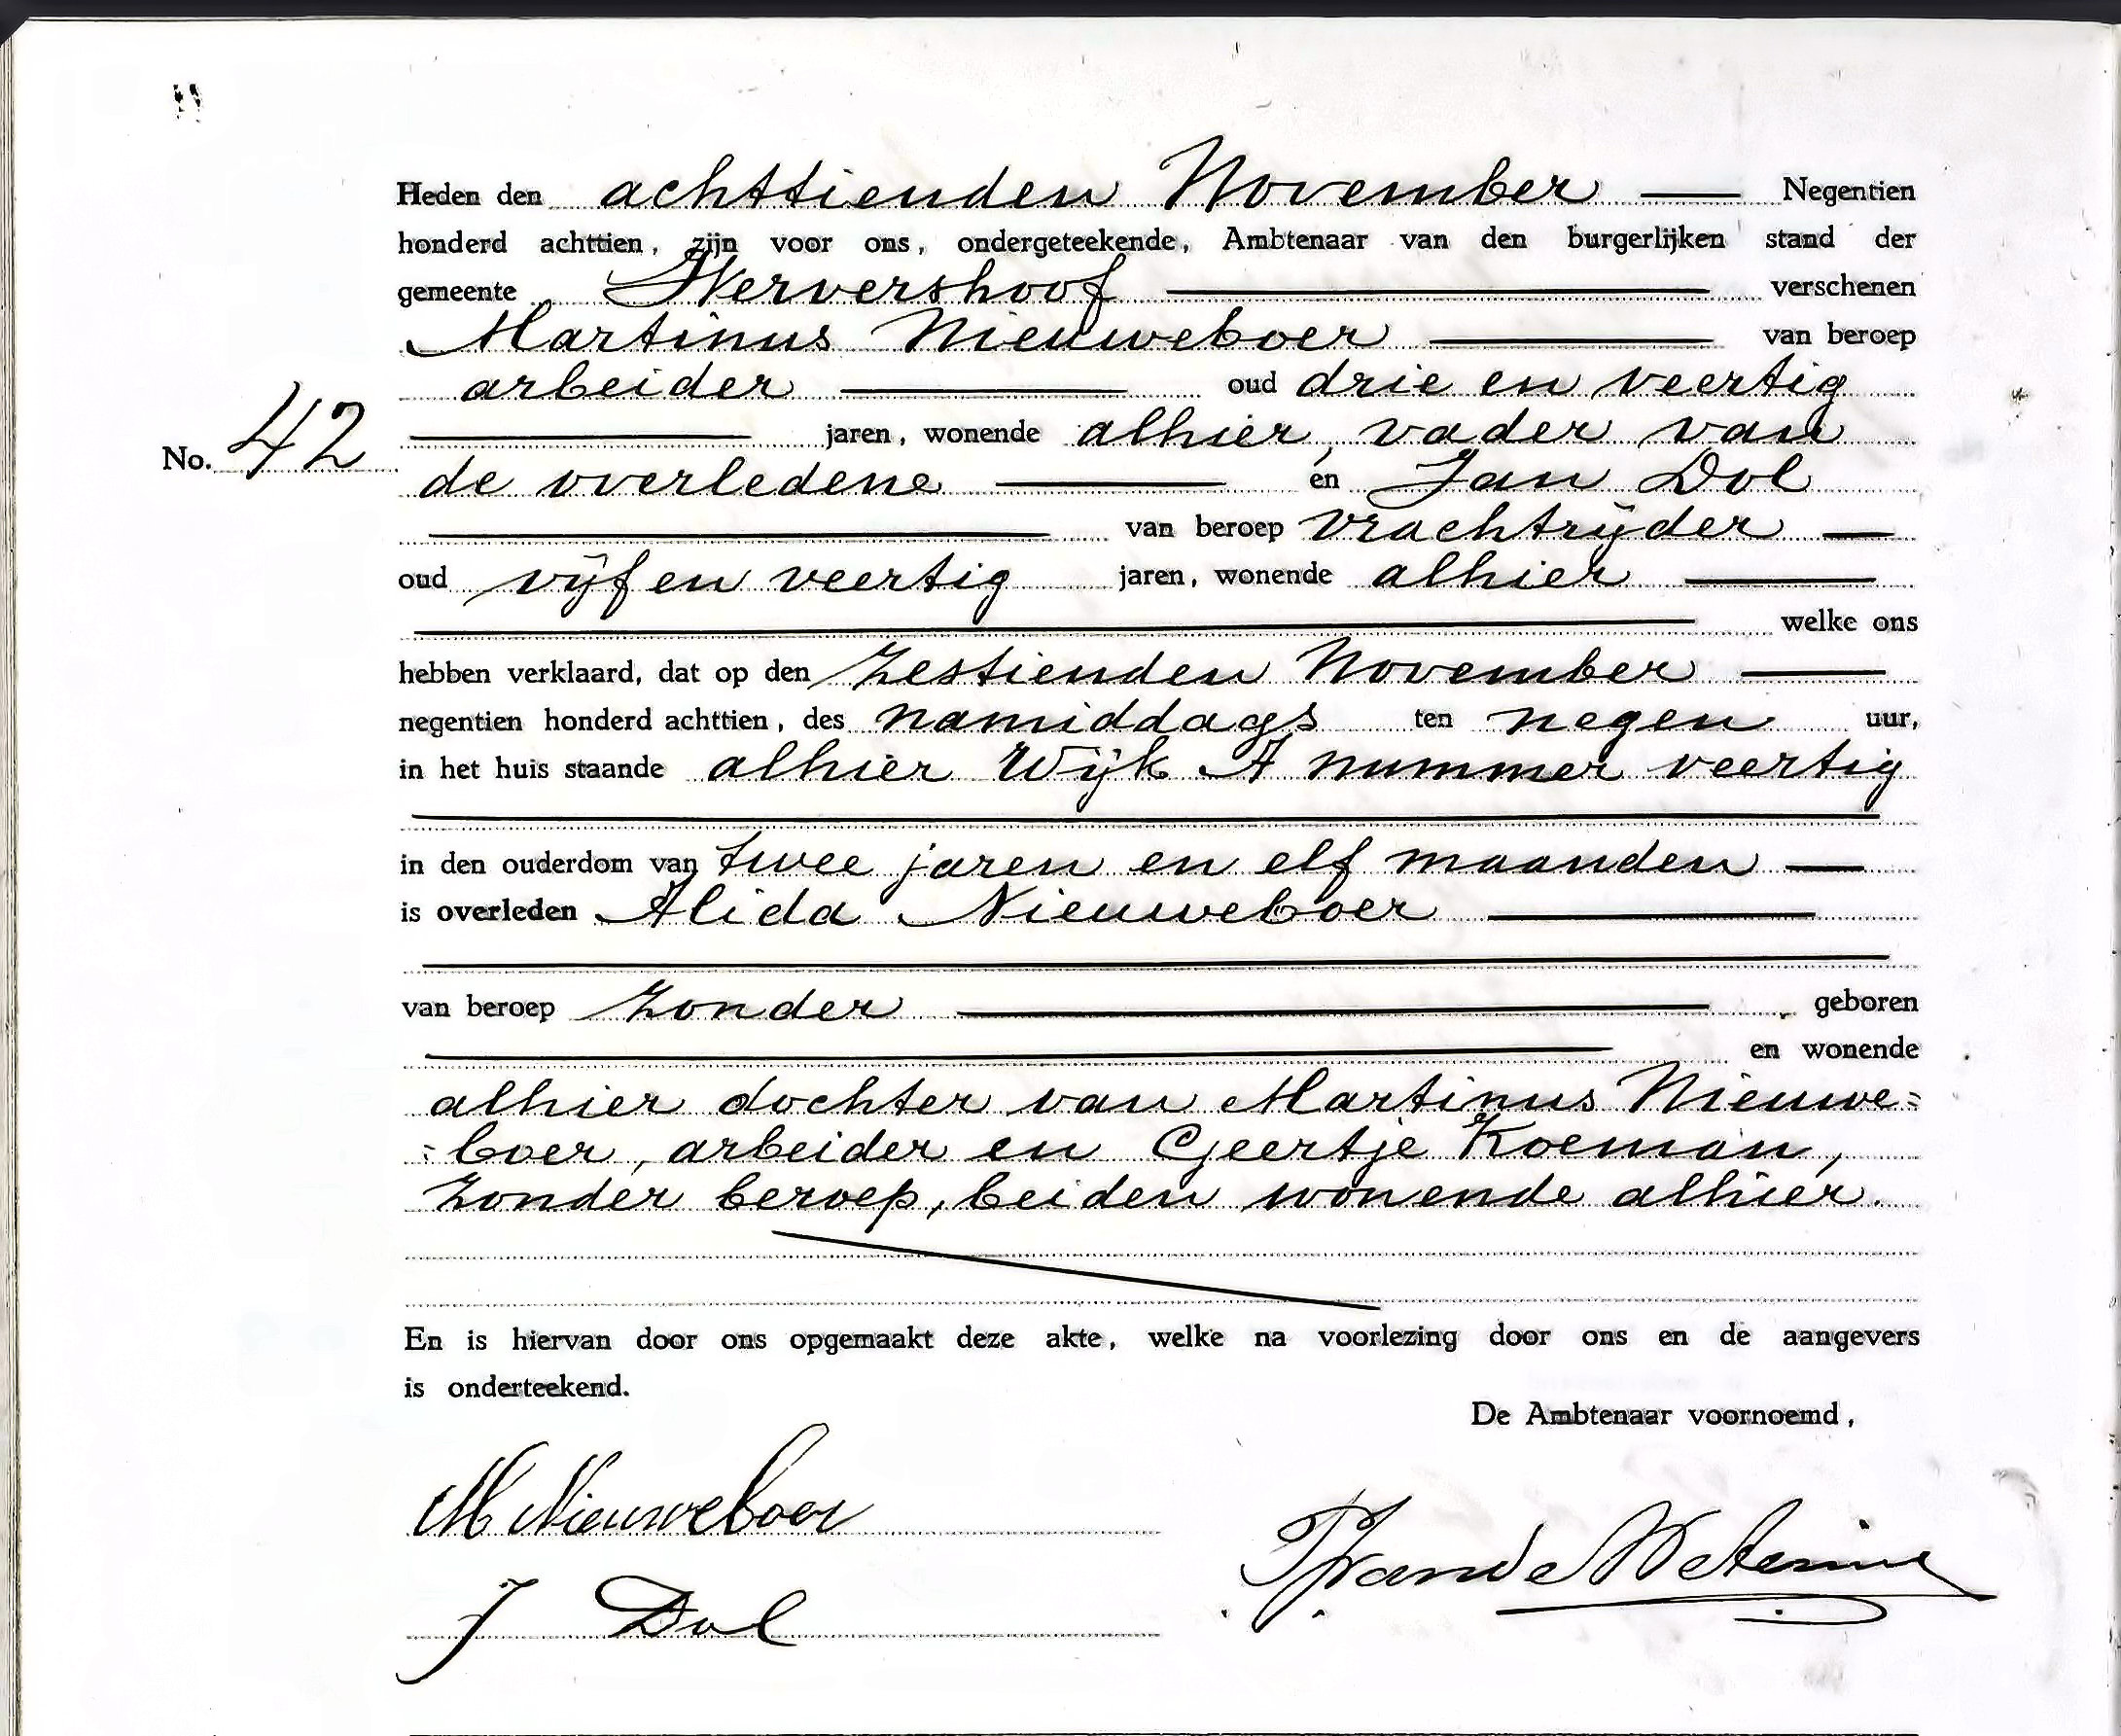 Heden den achttienden November Negentien
honderd achttien, zijn voor ons, ondergeteekende, Ambtenaar van den burgerlijken stand der
gemeente Wervershoof verschenen
Martinus Nieuweboer van beroep
arbeider oud drie en veertig
jaren, wonende alhier, vader van
No. 42
de overledene en Jan Dol
van beroep vrachtrijder
oud vijf en veertig jaren, wonende alhier
welke ons
hebben verklaard, dat op den zestienden November
negentien honderd achttien, des namiddags ten negen uur,
in het huis staande alhier Wijk A nummer veertig
in den ouderdom van twee jaren en elf maanden
is overleden Alida Nieuweboer
van beroep zonder geboren
en wonende
alhier dochter van Martinus Nieuwe=
=boer, arbeider en Geertje Koeman,
zonder beroep, beiden wonende alhier.
En is hiervan door ons opgemaakt deze akte, welke na voorlezing door ons en de aangevers
is onderteekend.
De Ambtenaar voornoemd,
M Nieuweboer
J Dol